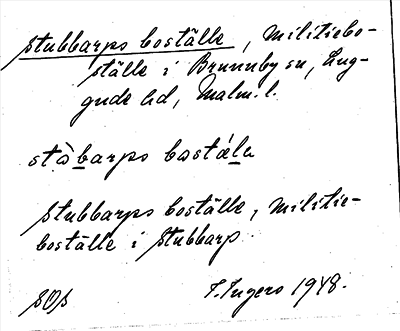 Stubbarps boställe, militiebo-
ställe i Brunnby sn, Lug-
gude hd, Malm. l.
stàbarps bastálu
Stubbarps boställe, militie-
boställe i Stubbarp.
SOS
F. Ingers 1948.